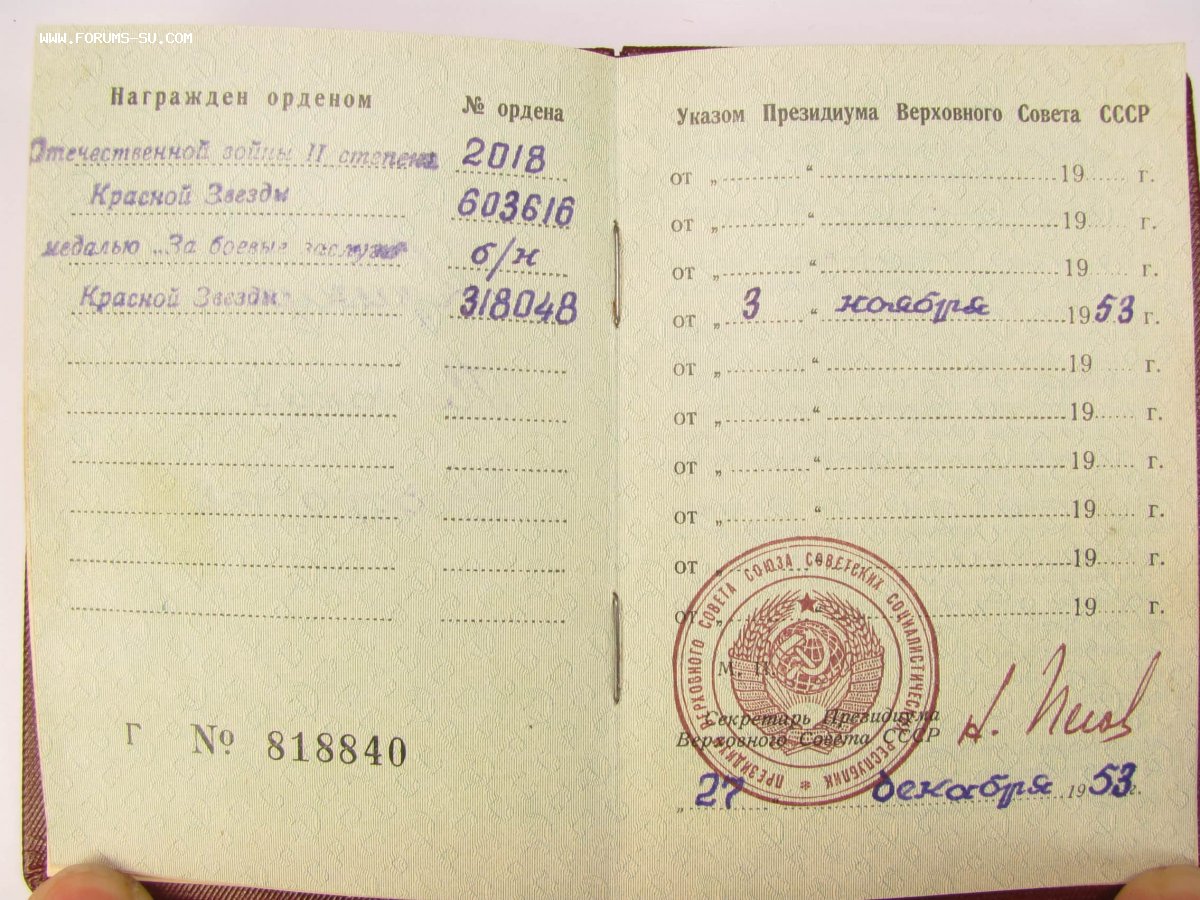 WWW.FORUMS-SU.COM
Награжден орденом
№ ордена
Отечественной войны II степени 2018
Красной Звезды 603616
медалью „За боевые заслуги" б/н
Красной Звезды 318048
Г № 818840
Указом Президиума Верховного Совета СССР
от „ “ 19 г.
от „ “ 19 г.
от „ “ 19 г.
от „ 3 “ ноября 1953 г.
от „ “ 19 г.
от „ “ 19 г.
от „ “ 19 г.
от „ “ 19 г.
от „ “ 19 г.
от „ “ 19 г.
ПРЕЗИДИУМ ВЕРХОВНОГО СОВЕТА СОЮЗА СОВЕТСКИХ СОЦИАЛИСТИЧЕСКИХ РЕСПУБЛИК
М. П.
Секретарь Президиума
Верховного Совета СССР
„ 27 “ декабря 1953 г.